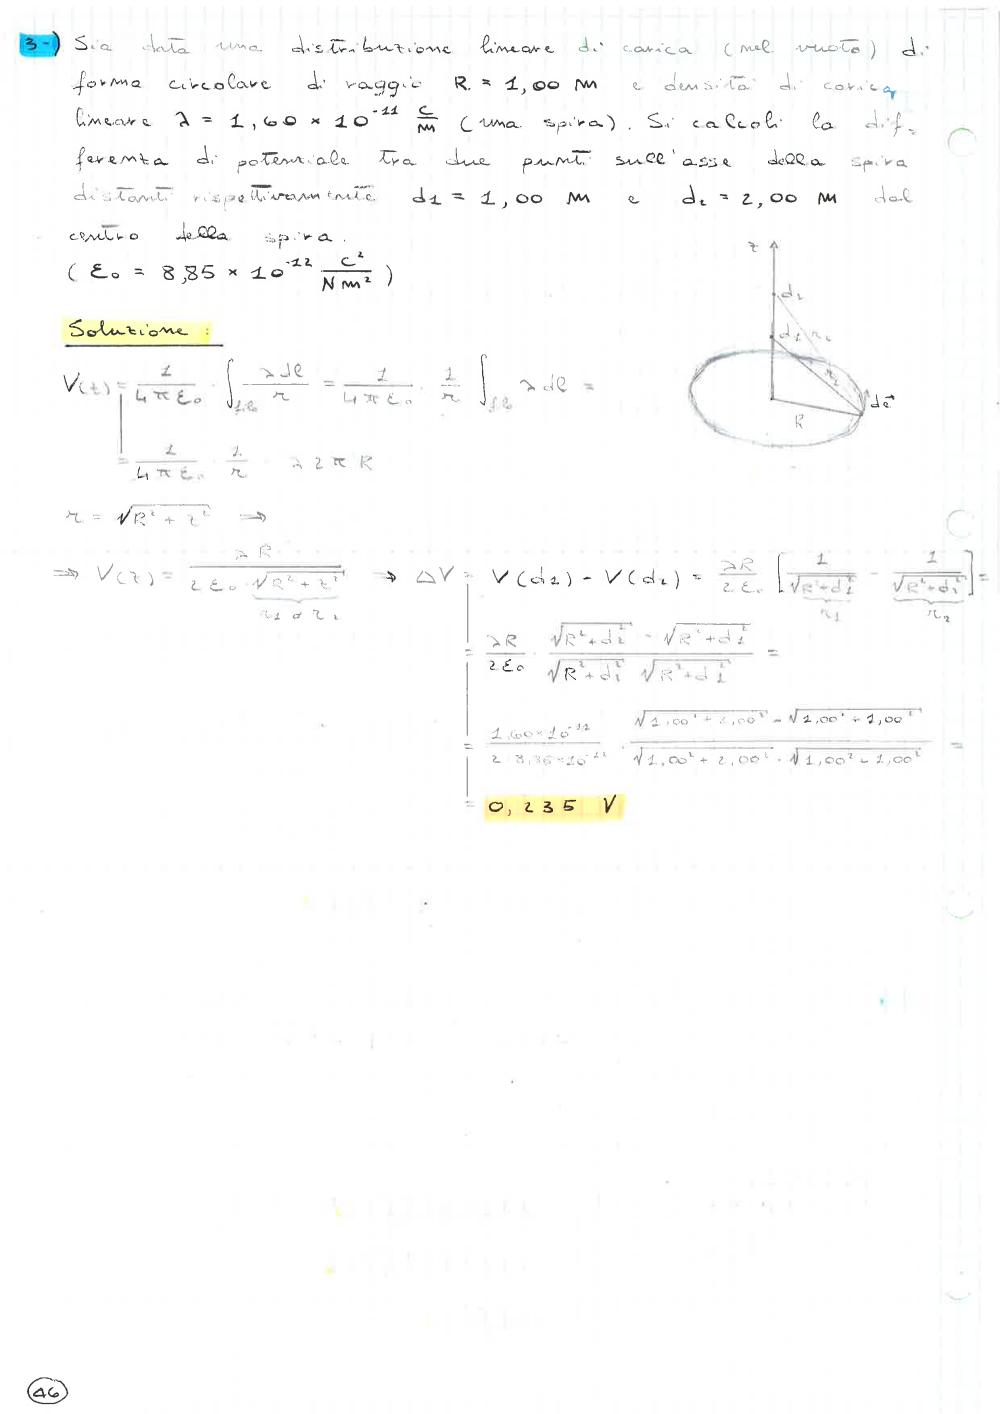 3-) Sia data una distribuzione lineare di carica (nel vuoto) di
forma circolare di raggio R = 1,00 m e densità di carica
lineare λ = 1,60 × 10⁻¹¹ C/m (una spira). Si calcoli la dif-
ferenza di potenziale tra due punti sull'asse della spira
distanti rispettivamente d₁ = 1,00 m e d₂ = 2,00 m dal
centro della spira.
(ε₀ = 8,85 × 10⁻¹² C²/Nm²)
z
d₂
d₁ r₂
r₁
dℓ
R
Soluzione:
V(z) = 1/(4πε₀) · ∫ λdℓ/r = 1/(4πε₀) · 1/r ∫ λdℓ =
= 1/(4πε₀) · 1/r · λ2πR
r = √(R² + z²) ⇒
⇒ V(z) = λR/(2ε₀ √(R² + z²)) ⇒ ΔV = V(d₁) - V(d₂) = λR/2ε₀ [1/√(R²+d₁²) - 1/√(R²+d₂²)] =
r₁ o r₂ r₁ r₂
= λR/2ε₀ · (√(R²+d₂²) - √(R²+d₁²))/(√(R²+d₂²) √(R²+d₁²)) =
= · (√(1,00² + 2,00²) - √(1,00² + 1,00²))/(√(1,00² + 2,00²) · √(1,00² + 1,00²)) =
= 0,235 V
46